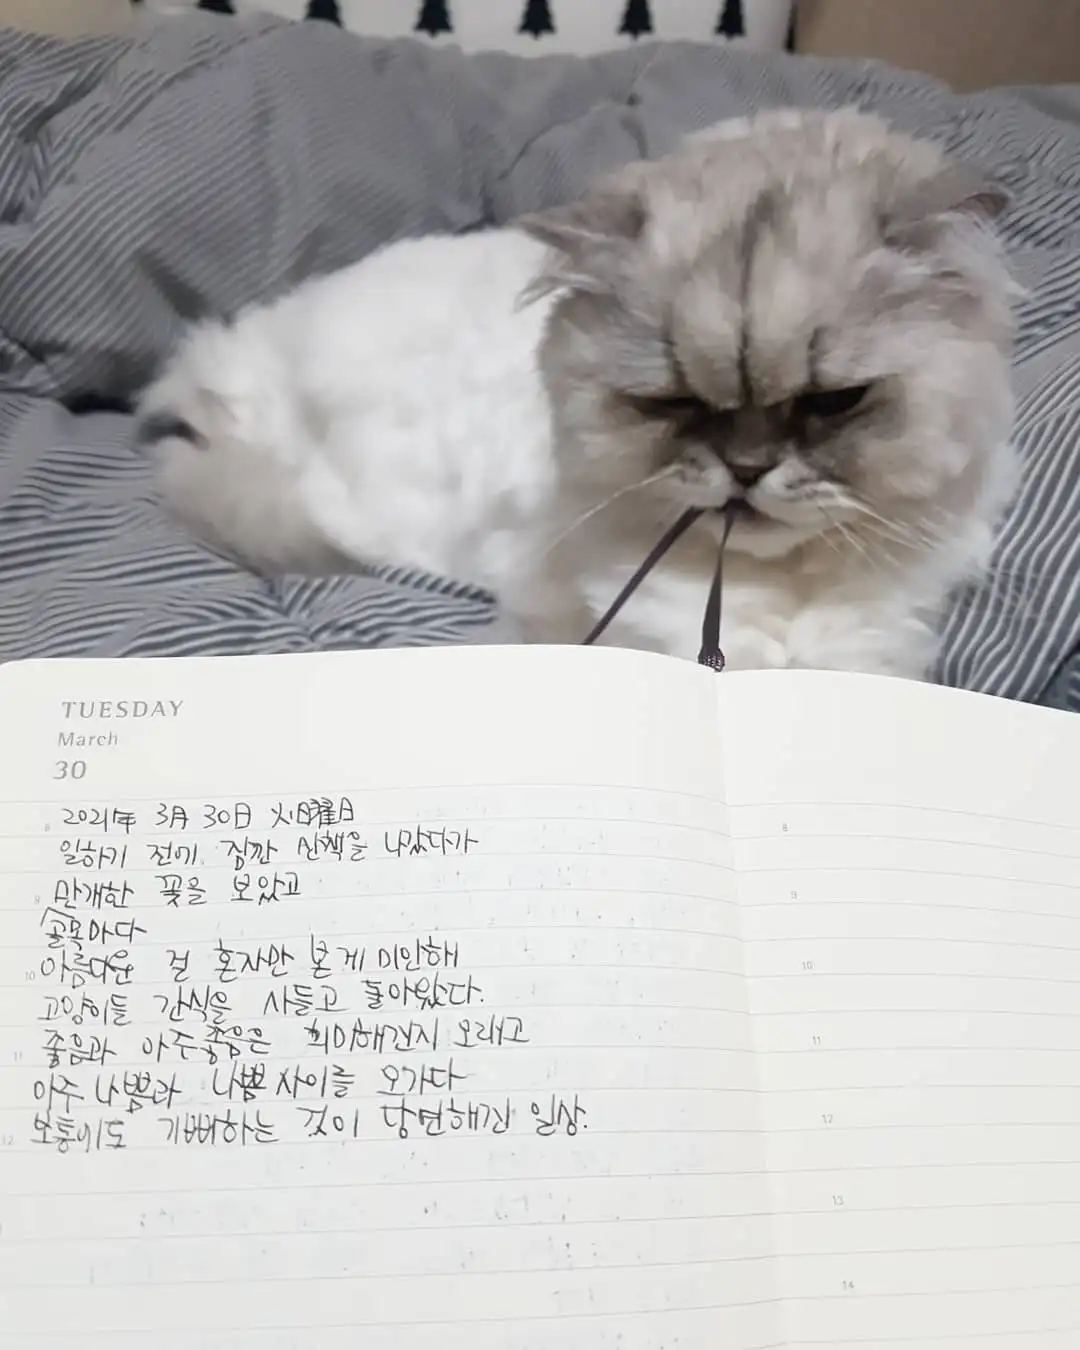 TUESDAY
March
30
2021年 3月 30日 火曜日
일하기 전에 잠깐 산책을 나갔다가
만개한 꽃을 보았고
골목마다
아름다운 걸 혼자만 본게 미안해
고양이들 간식을 사들고 돌아왔다.
좋음과 아주좋음은 희미해진지 오래고
아주 나쁨과 나쁨 사이를 오가다
보통에도 기뻐하는 것이 당연해진 일상.
8
9
10
11
12
8
9
10
11
12
13
14